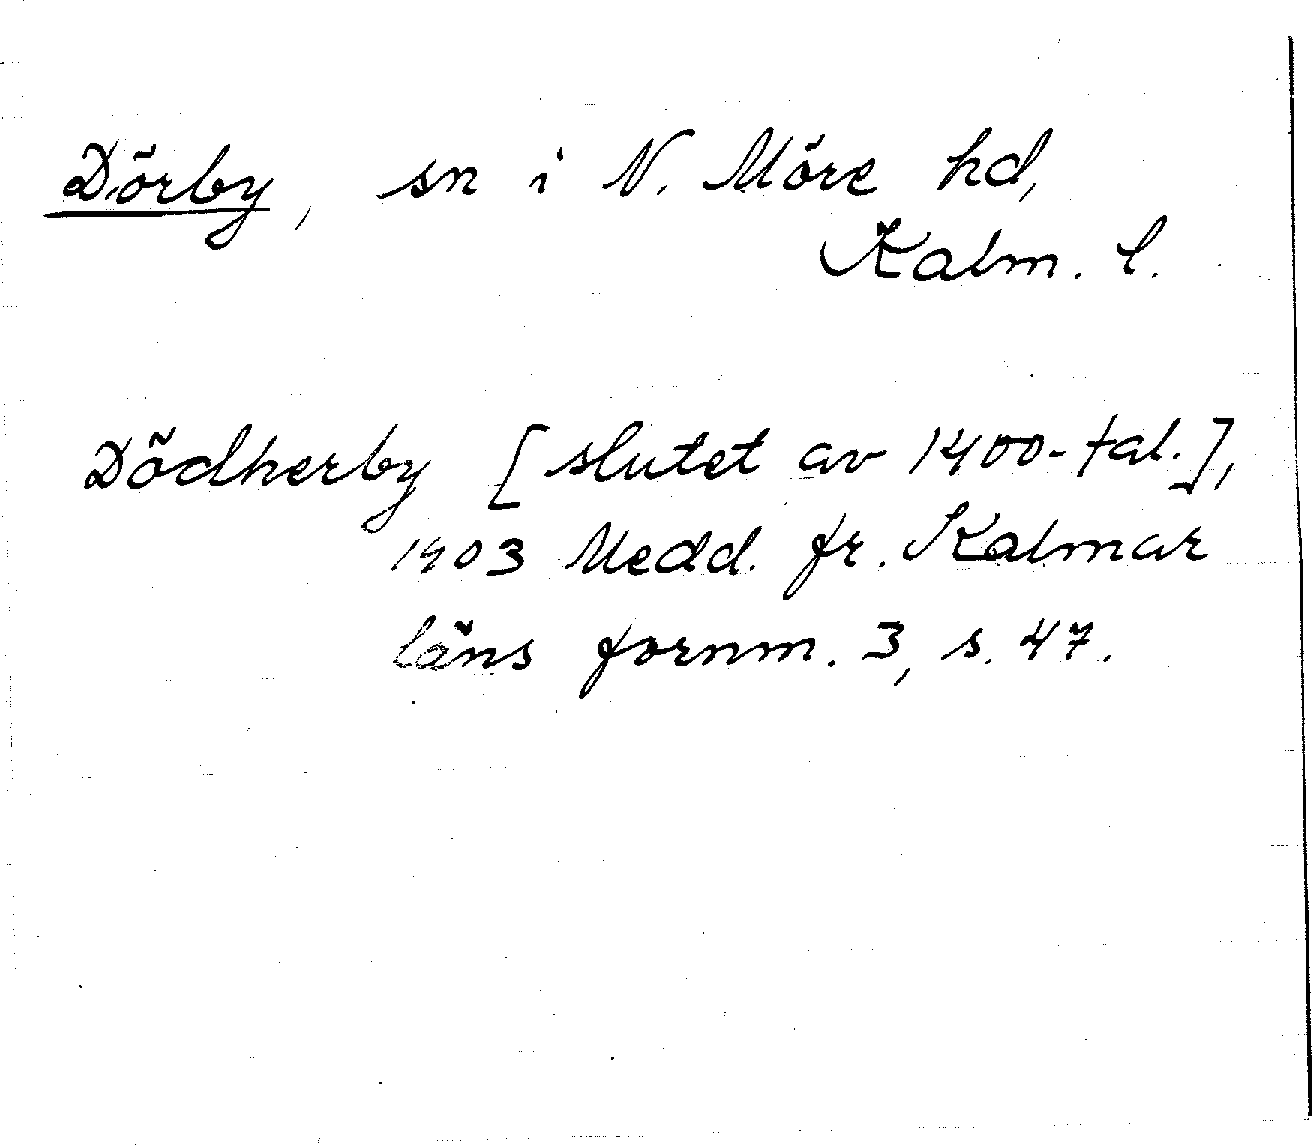 Dörby, sn i N. Möre hd,
Kalm. l.
Dödherby [slutet av 1400-tal.],
1903 Medd. fr. Kalmar
läns fornm. 3, s. 47.